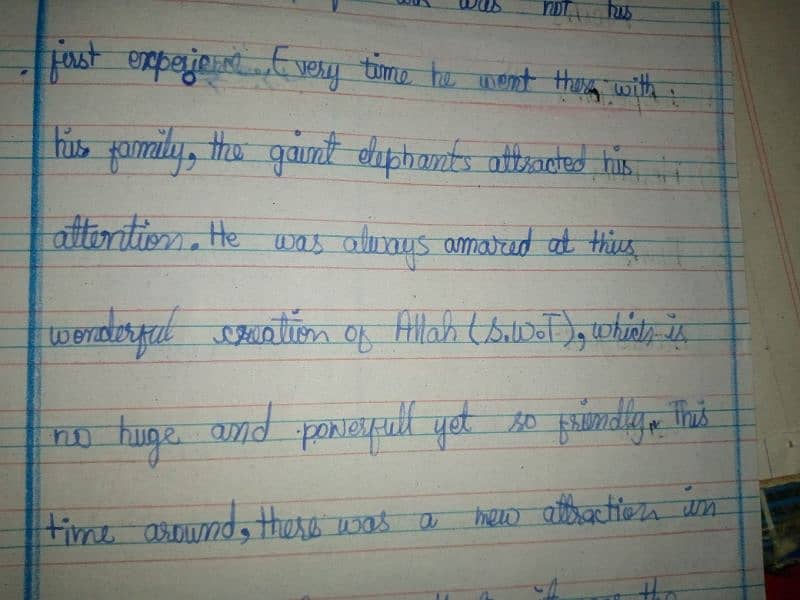 was not his
first experience. Every time he went there with
his family, the gaint elephants attracted his
attention. He was always amared at this
wonderful creation of Allah (S.W.T), which is
no huge and powerfull yet so friendly. This
time around, there was a new attraction in
the